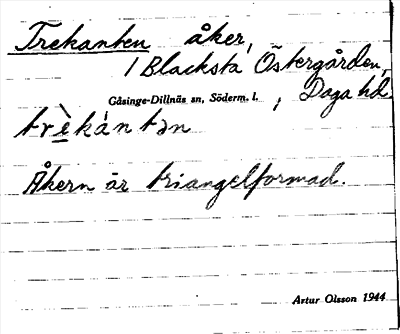 Trekanten åker,
1 Blacksta Östergården,
Gåsinge-Dillnäs sn, Söderm. l. , Daga hd
trè̱kán tən
Åkern är triangelformad.
Artur Olsson 1944